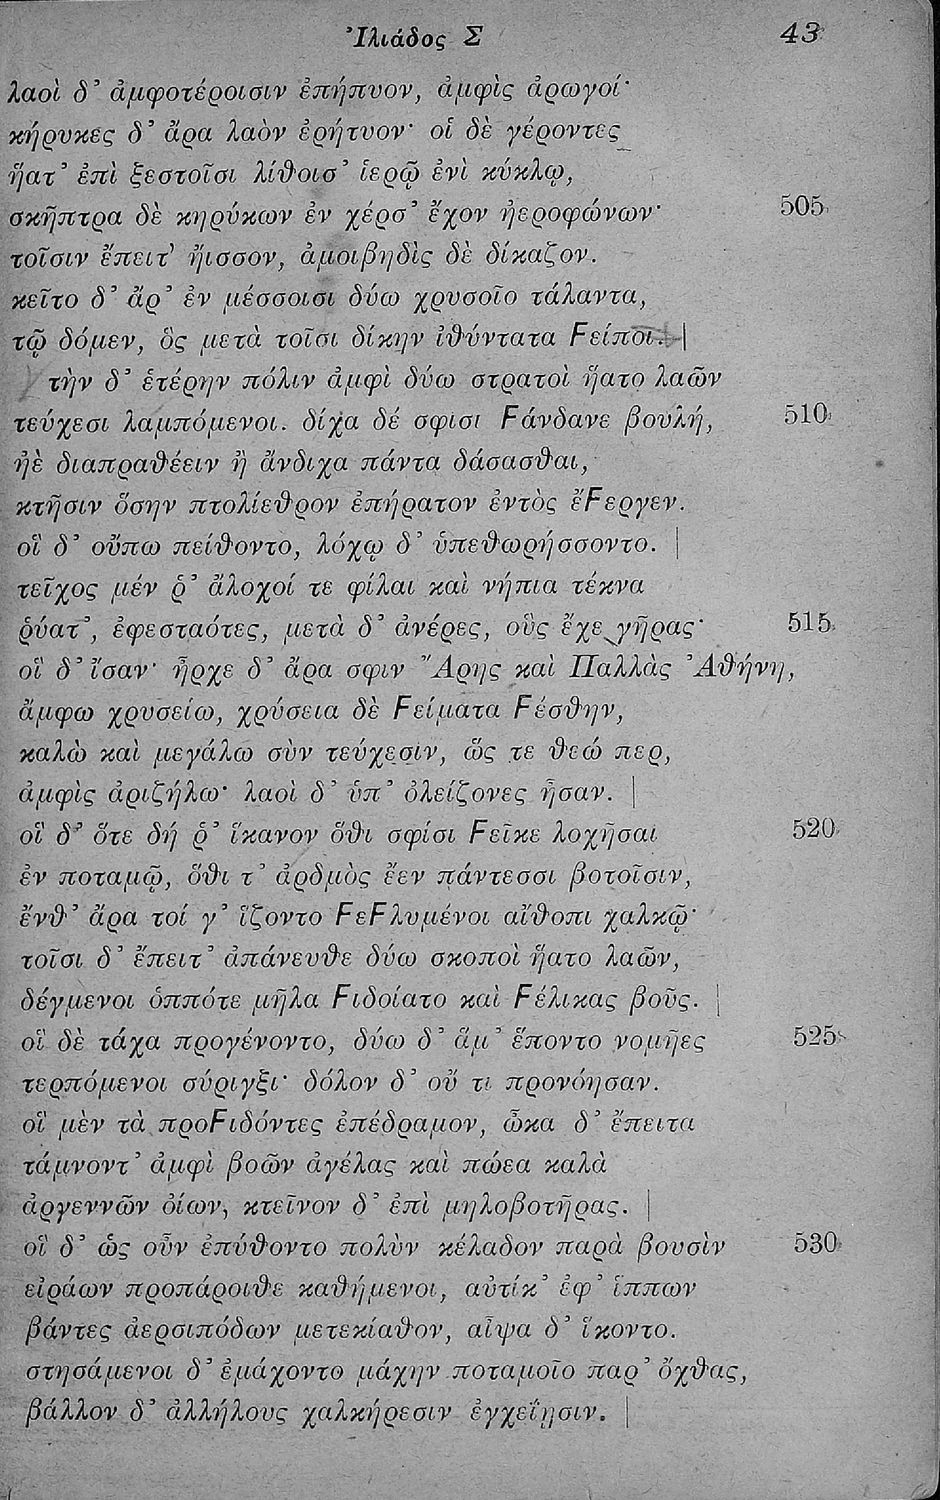 Ἰλιάδος Σ 43
λαοὶ δ᾽ ἀμφοτέροισιν ἐπήπυον, ἀμφὶς ἀρωγοί·
κήρυκες δ᾽ ἄρα λαὸν ἐρήτυον· οἱ δὲ γέροντες
ἥατ᾽ ἐπὶ ξεστοῖσι λίθοισ᾽ ἱερῷ ἐνὶ κύκλῳ,
σκῆπτρα δὲ κηρύκων ἐν χέρσ᾽ ἔχον ἠεροφώνων· 505
τοῖσιν ἔπειτ᾽ ἤισσον, ἀμοιβηδὶς δὲ δίκαζον.
κεῖτο δ᾽ ἄρ᾽ ἐν μέσσοισι δύω χρυσοῖο τάλαντα,
τῷ δόμεν, ὃς μετὰ τοῖσι δίκην ἰθύντατα Ϝείποι. |
τὴν δ᾽ ἑτέρην πόλιν ἀμφὶ δύω στρατοὶ ἥατο λαῶν
τεύχεσι λαμπόμενοι. δίχα δέ σφισι Ϝάνδανε βουλή, 510
ἠὲ διαπραθέειν ἢ ἄνδιχα πάντα δάσασθαι,
κτῆσιν ὅσην πτολίεθρον ἐπήρατον ἐντὸς ἔϜεργεν.
οἳ δ᾽ οὔπω πείθοντο, λόχῳ δ᾽ ὑπεθωρήσσοντο. |
τεῖχος μέν ῥ᾽ ἄλοχοί τε φίλαι καὶ νήπια τέκνα
ῥύατ᾽, ἐφεσταότες, μετὰ δ᾽ ἀνέρες, οὓς ἔχε γῆρας· 515
οἳ δ᾽ ἴσαν· ἦρχε δ᾽ ἄρα σφιν Ἄρης καὶ Παλλὰς Ἀθήνη,
ἄμφω χρυσείω, χρύσεια δὲ Ϝείματα Ϝέσθην,
καλὼ καὶ μεγάλω σὺν τεύχεσιν, ὥς τε θεώ περ,
ἀμφὶς ἀριζήλω· λαοὶ δ᾽ ὑπ᾽ ὀλείζονες ἦσαν. |
οἳ δ᾽ ὅτε δή ῥ᾽ ἵκανον ὅθι σφίσι Ϝεῖκε λοχῆσαι 520
ἐν ποταμῷ, ὅθι τ᾽ ἀρδμὸς ἔεν πάντεσσι βοτοῖσιν,
ἔνθ᾽ ἄρα τοί γ᾽ ἵζοντο ϜεϜλυμένοι αἴθοπι χαλκῷ·
τοῖσι δ᾽ ἔπειτ᾽ ἀπάνευθε δύω σκοποὶ ἥατο λαῶν,
δέγμενοι ὁππότε μῆλα Ϝιδοίατο καὶ Ϝέλικας βοῦς. |
οἳ δὲ τάχα προγένοντο, δύω δ᾽ ἅμ᾽ ἕποντο νομῆες 525
τερπόμενοι σύριγξι· δόλον δ᾽ οὔ τι προνόησαν.
οἳ μὲν τὰ προϜιδόντες ἐπέδραμον, ὦκα δ᾽ ἔπειτα
τάμνοντ᾽ ἀμφὶ βοῶν ἀγέλας καὶ πώεα καλὰ
ἀργεννῶν ὀίων, κτεῖνον δ᾽ ἐπὶ μηλοβοτῆρας. |
οἳ δ᾽ ὡς οὖν ἐπύθοντο πολὺν κέλαδον παρὰ βουσὶν 530
εἰράων προπάροιθε καθήμενοι, αὐτίκ᾽ ἐφ᾽ ἵππων
βάντες ἀερσιπόδων μετεκίαθον, αἶψα δ᾽ ἵκοντο.
στησάμενοι δ᾽ ἐμάχοντο μάχην ποταμοῖο παρ᾽ ὄχθας,
βάλλον δ᾽ ἀλλήλους χαλκήρεσιν ἐγχεΐῃσιν. |